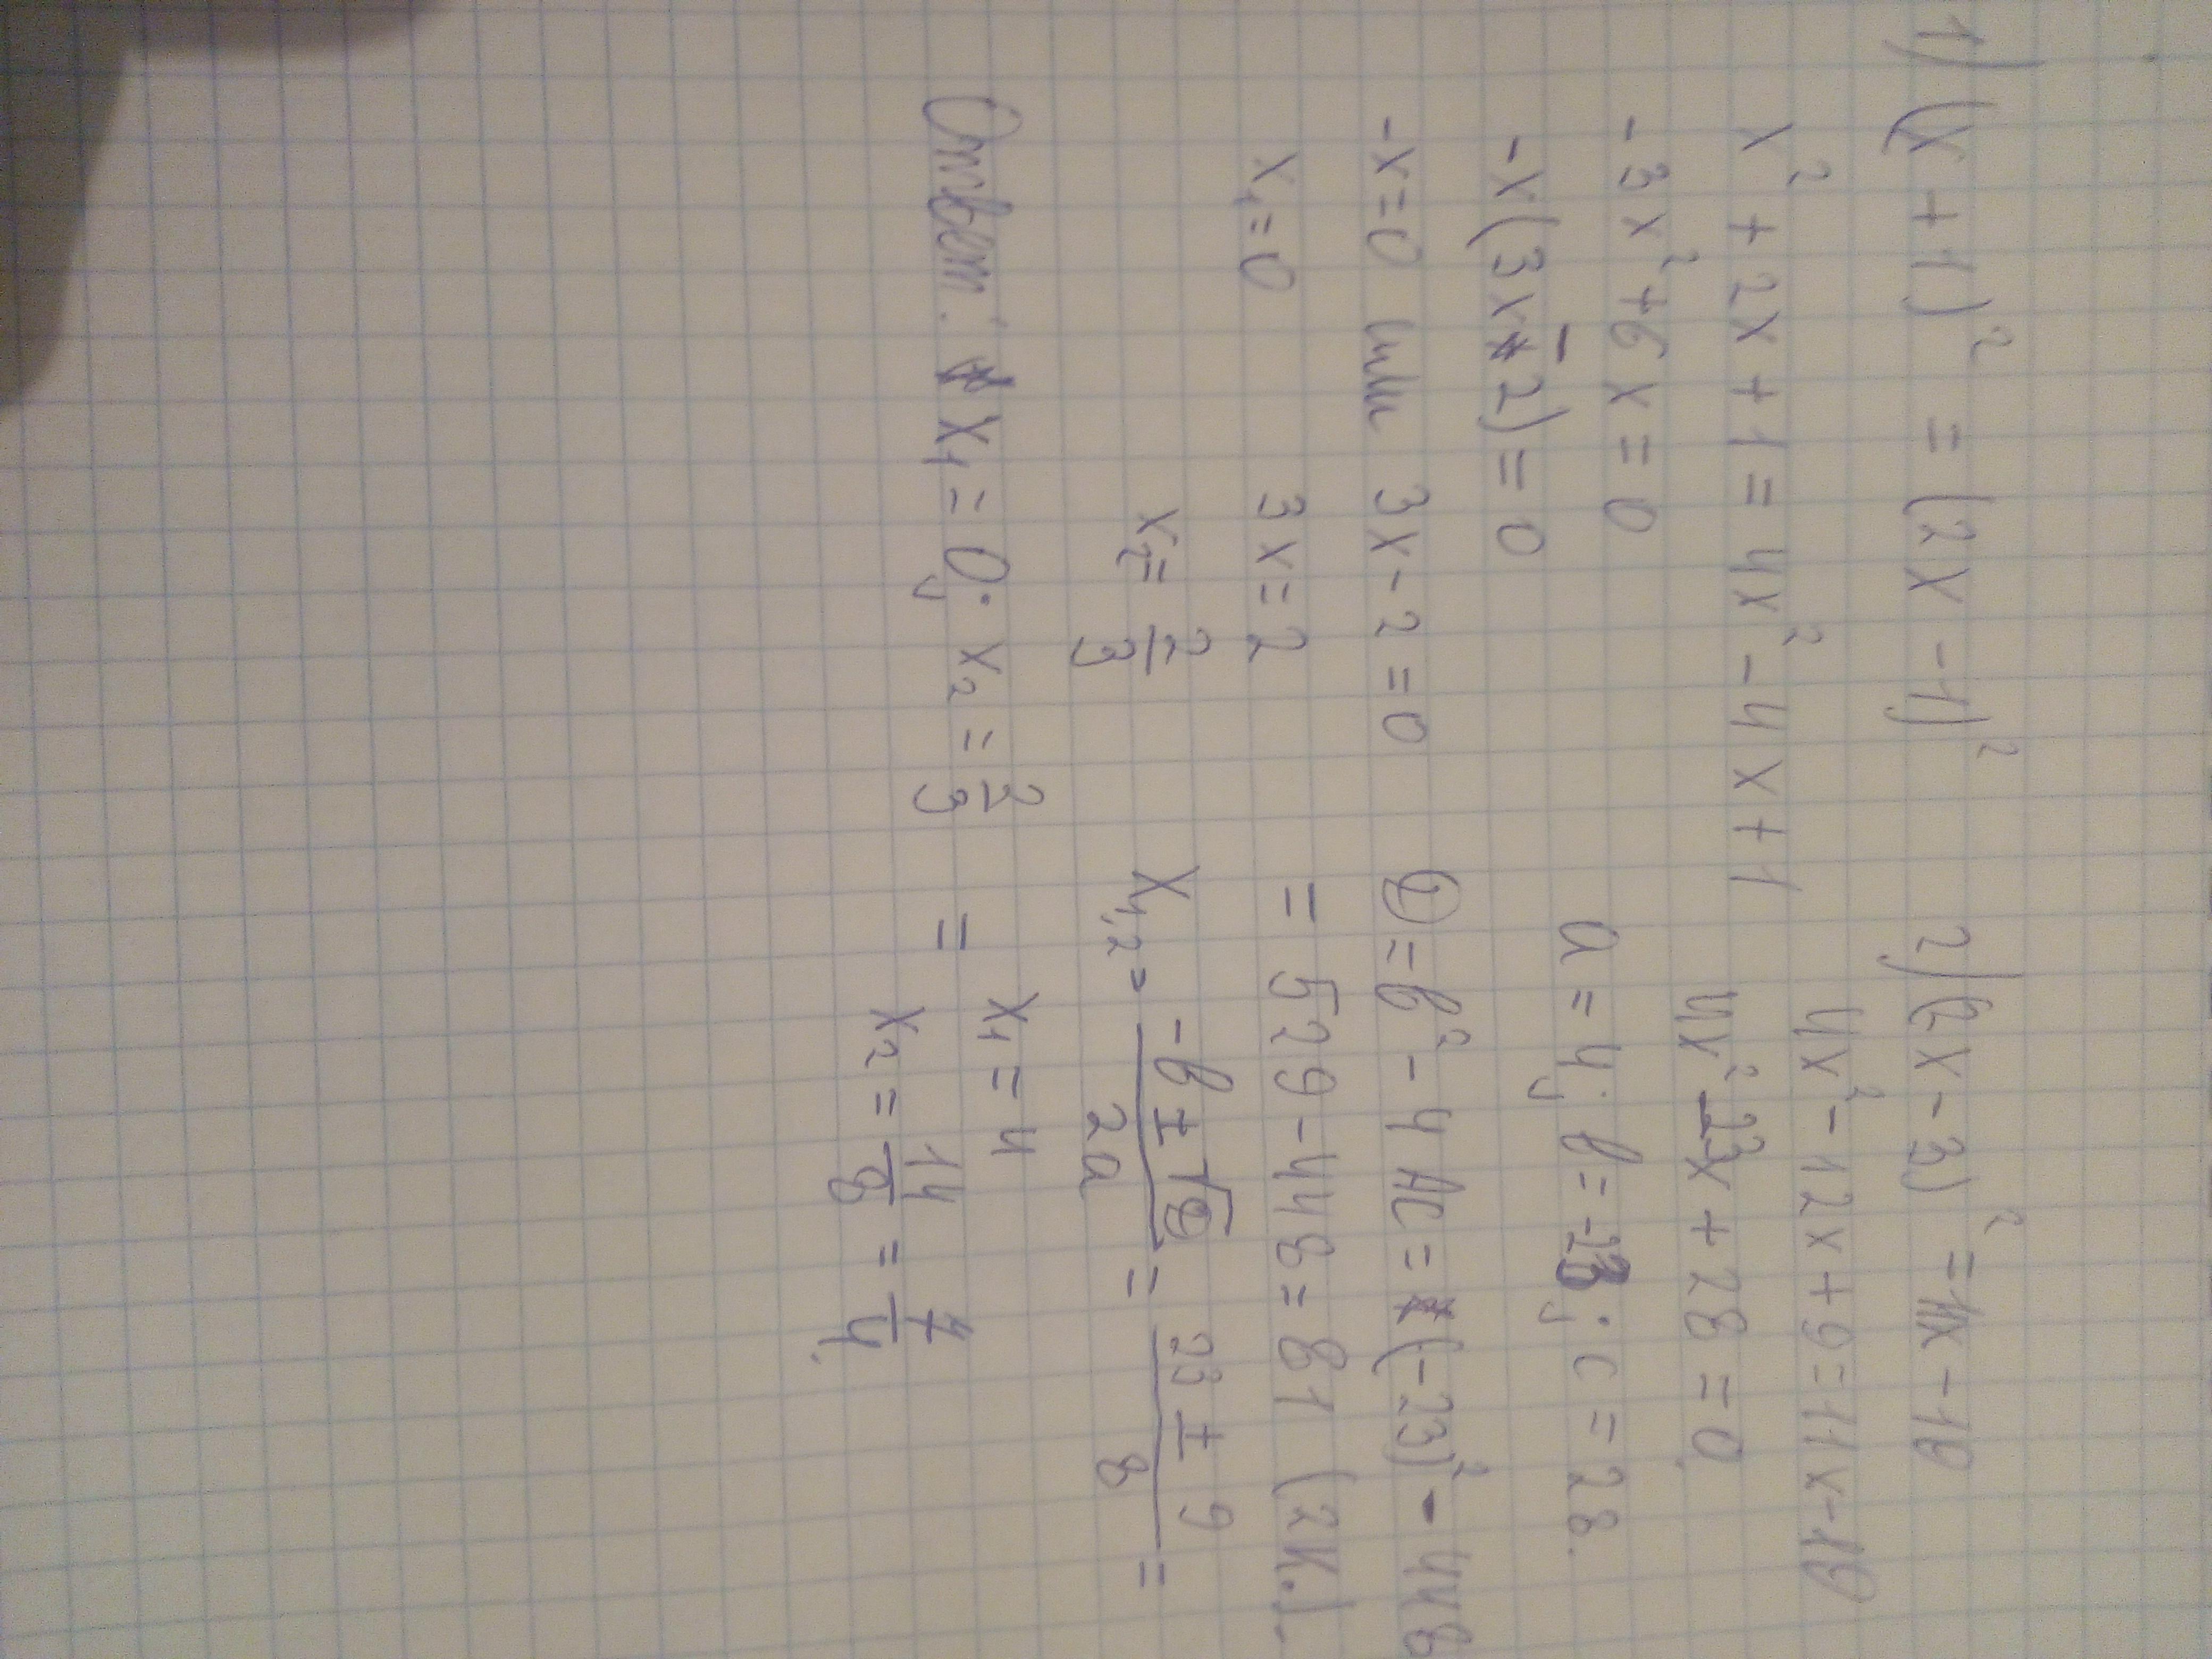 1) (x + 1)² = (2x - 1)²
x² + 2x + 1 = 4x² - 4x + 1
-3x² + 6x = 0
-x(3x - 2) = 0
-x = 0 или 3x - 2 = 0
x₁ = 0 3x = 2
x₂ = 2/3
Ответ: x₁ = 0; x₂ = 2/3
2) (2x - 3)² = 11x - 19
4x² - 12x + 9 = 11x - 19
4x² - 23x + 28 = 0
a = 4; b = -23; c = 28.
D = b² - 4AC = (-23)² - 448
= 529 - 448 = 81 (2к.).
X₁,₂ = (-b ± √D)/2a = (23 ± 9)/8 =
= x₁ = 4
x₂ = 14/8 = 7/4.